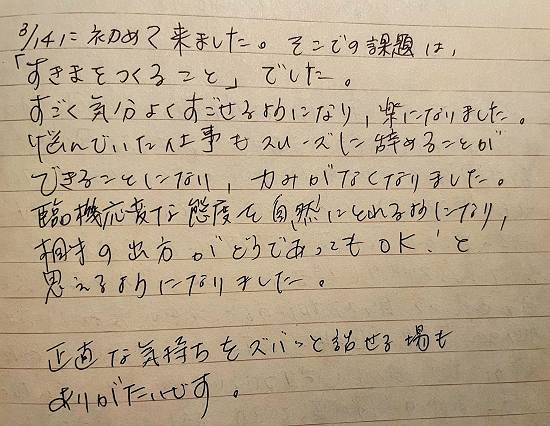 3/14に初めて来ました。そこでの課題は、
「すきまをつくること」でした。
すごく気分よくすごせるようになり、楽になりました。
悩んでいた仕事もスムーズに辞めることが
できることになり、力みがなくなりました。
臨機応変な態度を自然にとれるようになり、
相手の出方がどうであってもOK!と
思えるようになりました。
正直な気持ちをズバッと話せる場も
ありがたいです。